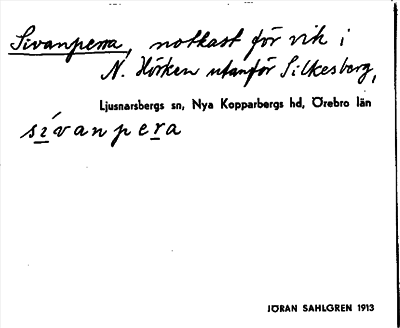 Sivanperra, notkast för vik i
N. Hörken utanför Silkesberg,
Ljusnarsbergs sn, Nya Kopparbergs hd, Örebro län
sívanpera
JÖRAN SAHLGREN 1913